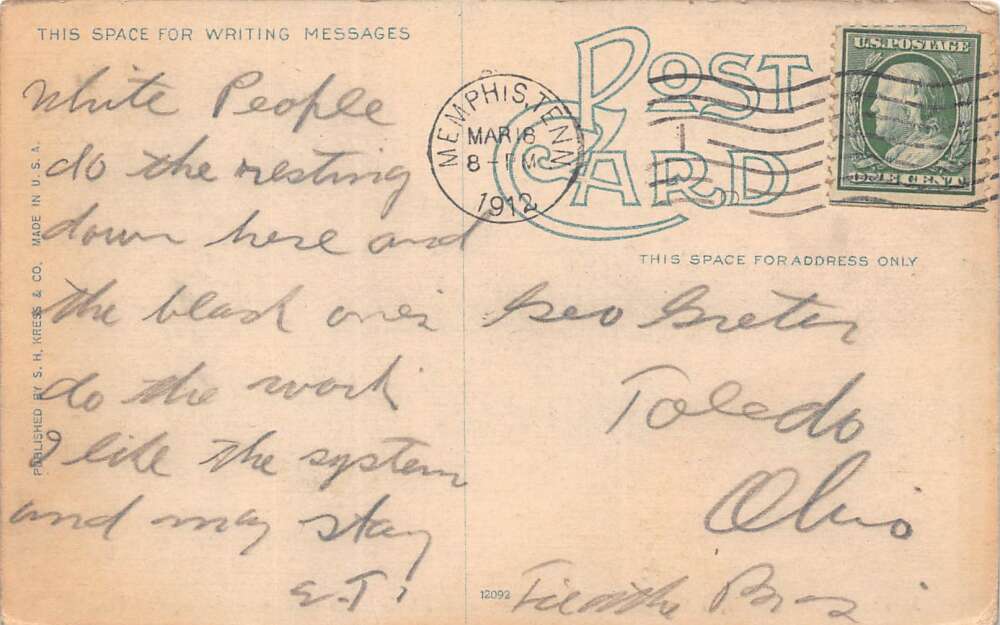 THIS SPACE FOR WRITING MESSAGES
White People
do the resting
down here and
the black ones
do the work
I like the system
and may stay
E.T.
PUBLISHED BY S. H. KRESS & CO. MADE IN U.S.A.
POST
CARD
MEMPHIS, TENN
MAR 18
8-PM
1912
U.S. POSTAGE
ONE CENT
THIS SPACE FOR ADDRESS ONLY
Geo
Toledo
Ohio
Bros
12092